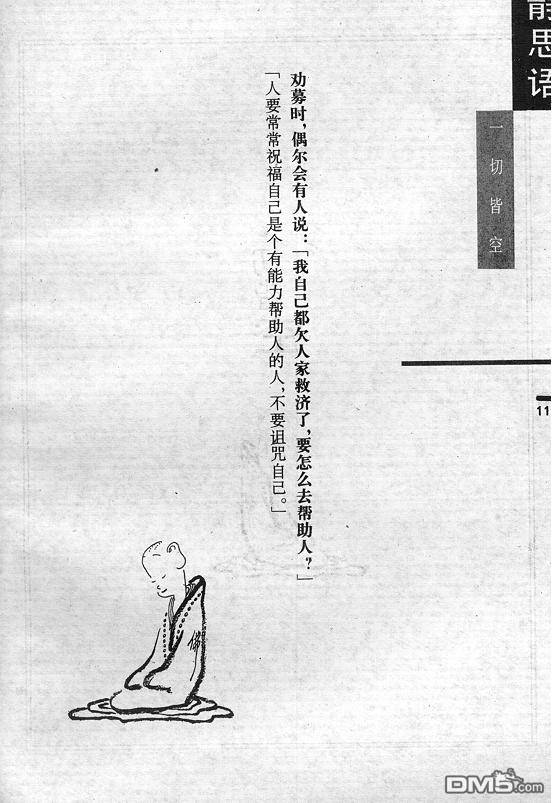 静思语
一切皆空
11
劝募时，偶尔会有人说：「我自己都欠人家救济了，要怎么去帮助人？」
「人要常常祝福自己是个有能力帮助人的人，不要诅咒自己。」
佛
DM5.com